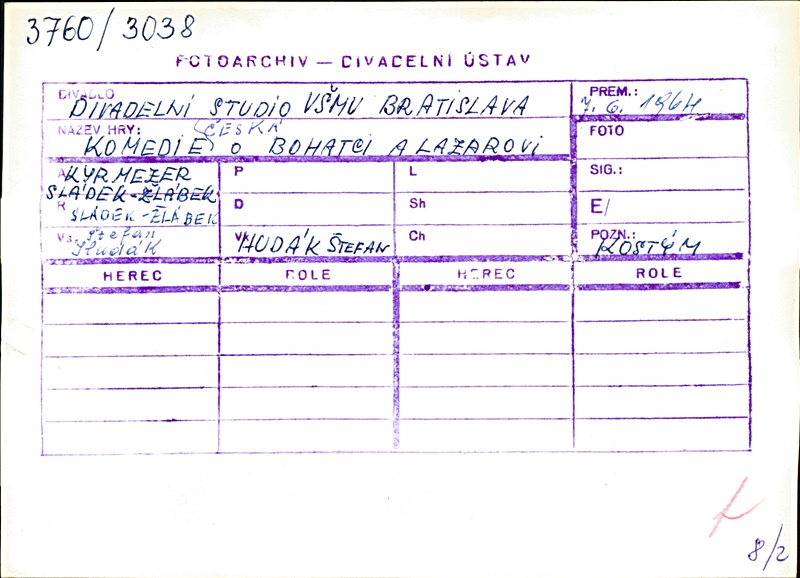 3760/3038
FOTOARCHIV — DIVADELNÍ ÚSTAV
DIVADLO DIVADELNÍ STUDIO VŠMU BRATISLAVA
PREM.: 7. 6. 1964
NÁZEV HRY: ČESKÁ
KOMEDIE O BOHATCI A LAZAROVI
FOTO
A KYRMEZER
SLÁDEK-ŽLÁBEK
P
L
SIG.:
R SLÁDEK-ŽLÁBEK
D
Sh
E/
Vs. Štefan
Hudák
Vk HUDÁK ŠTEFAN
Ch
POZN.: KOSTÝM
HEREC ROLE HEREC ROLE
8/2